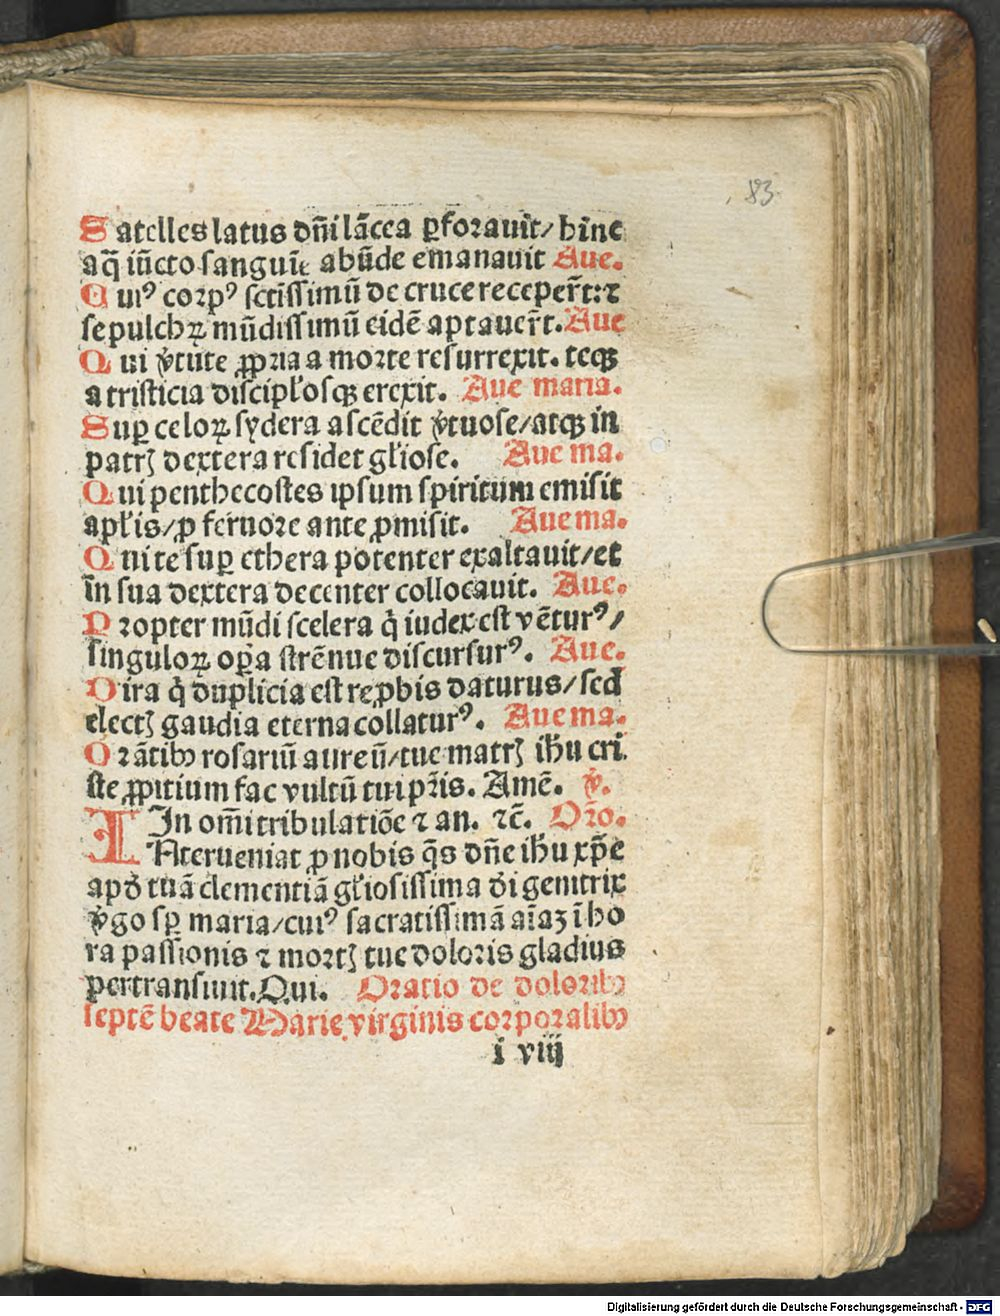 83
Satelles latus dn̄i lācea ꝑforauit/ hinc
aq̄ iūcto sanguīe abūde emanauit Aue.
Cuiꝰ corpꝰ sctīssimū de cruce recepert̄: ⁊
sepulchꝝ mūdissimū eidē aptauert̄. Aue
Qui v̓tute ꝓpria a morte resurrexit. teqꝫ
a tristicia discipłosqꝫ erexit. Aue maria.
Suꝑ celoꝝ sydera ascēdit v̓tuose/ atqꝫ in
patrꝭ dextera residet gł̓iose. Aue ma.
Qui penthecostes ipsum spiritum emisit
apł̓is/ ꝑ feruore ante ꝓmisit. Aue ma.
Qui te suꝑ ethera potenter exaltauit/ et
in sua dextera decenter collocauit. Aue.
Propter mūdi scelera q̇ iudex est vēturꝰ/
singuloꝝ oꝑa strēnue discursurꝰ. Aue.
Dira q̇ duplicia est reꝓbis daturus/ sed
electꝭ gaudia eterna collaturꝰ. Aue ma.
Orātibꝰ rosariū aureū/ tue matrꝭ ih̄u cri
ste ꝓpitium fac vultū tui pr̄is. Amē. v̓.
In om̄i tribulatiōe ⁊ an. ⁊c̄. Or̄o.
INterueniat ꝓ nobis q̄s dn̄e ih̄u xp̄e
apđ tuā clementiā gł̓iosissima đi genitrix
v̓go sꝑ maria/ cuiꝰ sacratissimā aīaꝫ ī ho
ra passionis ⁊ mortꝭ tue doloris gladius
pertransiuit. Qui. Oratio de doloribꝰ
septē beate Marie virginis corporalibꝰ
i viij
Digitalisierung gefördert durch die Deutsche Forschungsgemeinschaft - DFG